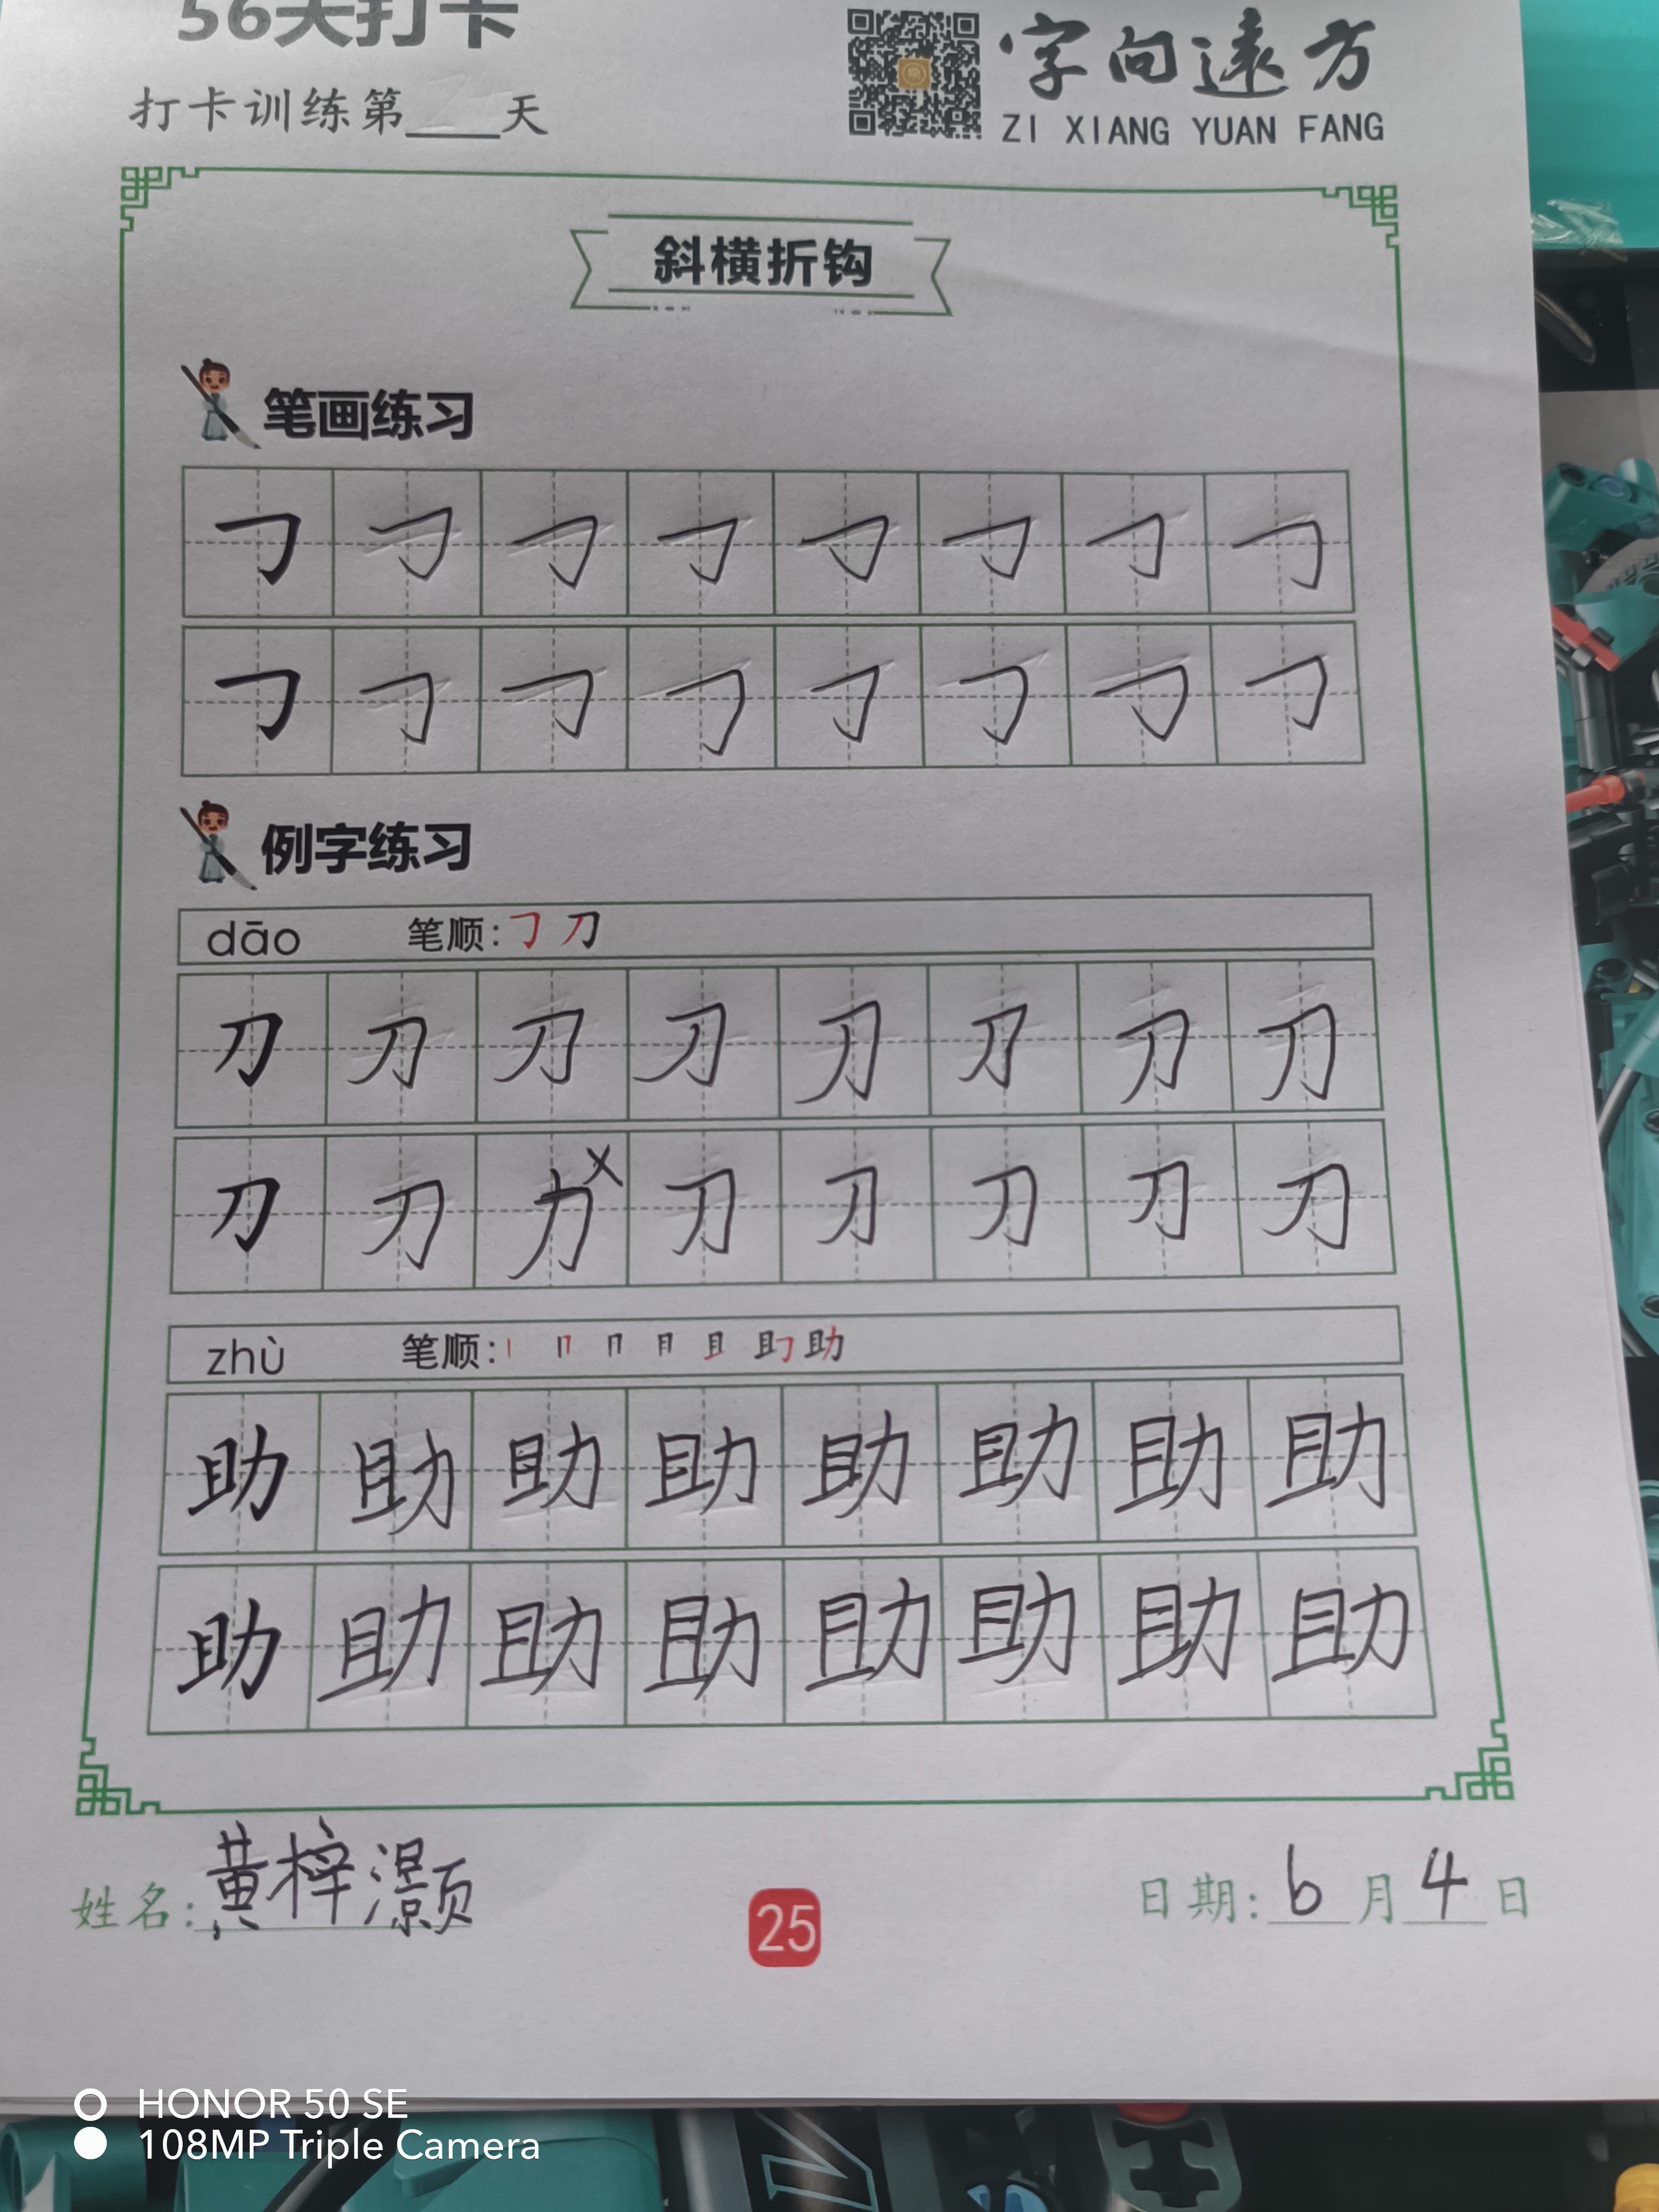 56天打卡
打卡训练第___天
字向遠方
ZI XIANG YUAN FANG
斜横折钩
笔画练习
例字练习
dāo 笔顺: 𠃌 刀
刀 刀 刀 刀 刀 刀 刀 刀
刀 刀 力 × 刀 刀 刀 刀 刀
zhù 笔顺: 助
助 助 助 助 助 助 助 助
助 助 助 助 助 助 助 助
姓名: 黄梓灏
25
日期: 6 月 4 日
HONOR 50 SE
108MP Triple Camera